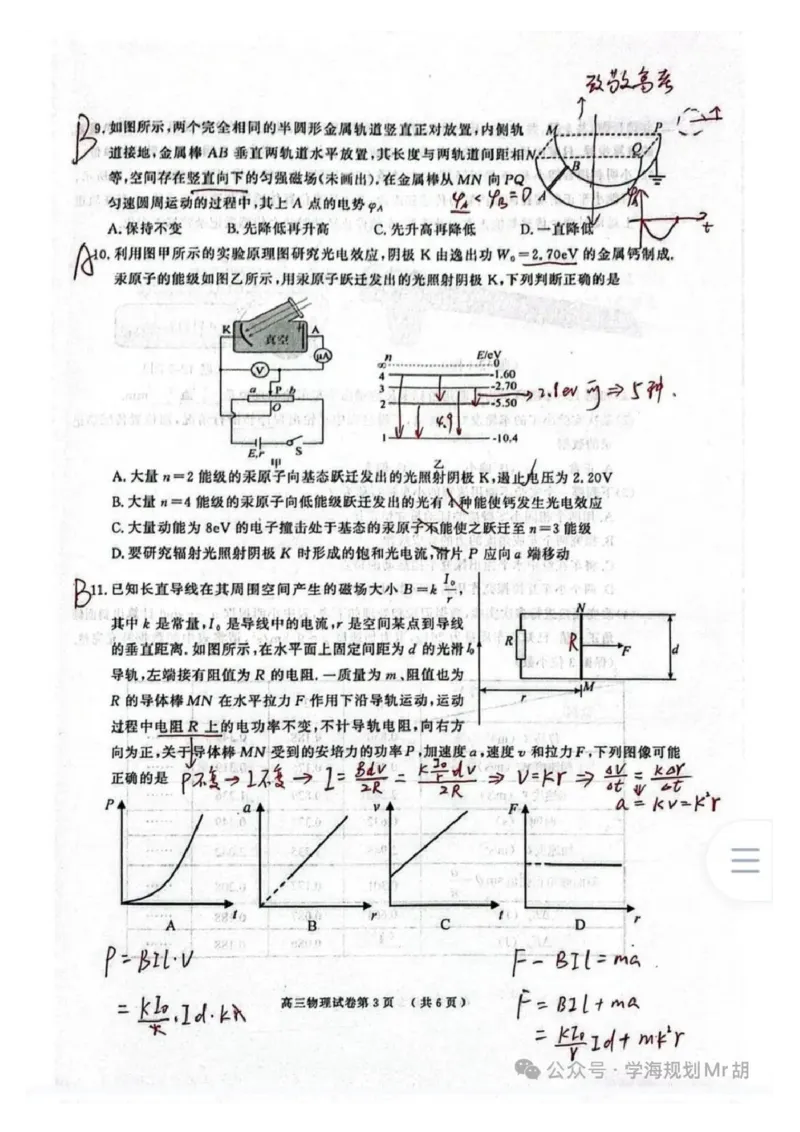 致敬高考
B 9. 如图所示,两个完全相同的半圆形金属轨道竖直正对放置,内侧轨
道接地,金属棒 AB 垂直两轨道水平放置,其长度与两轨道间距相
等,空间存在竖直向下的匀强磁场(未画出),在金属棒从 MN 向 PQ
匀速圆周运动的过程中,其上 A 点的电势φA
φA<φB=0
M P N Q B A
φA t
A. 保持不变 B. 先降低再升高 C. 先升高再降低 D. 一直降低
A 10. 利用图甲所示的实验原理图研究光电效应,阴极 K 由逸出功 W₀=2.70eV 的金属钙制成,
汞原子的能级如图乙所示,用汞原子跃迁发出的光照射阴极 K,下列判断正确的是
K A 真空 μA V a P b O E,r S
甲
n E/eV
∞ 0
4 -1.60
3 -2.70
2 -5.50
1 -10.4
乙
4.9
A. 大量 n=2 能级的汞原子向基态跃迁发出的光照射阴极 K,遏止电压为 2.20V
B. 大量 n=4 能级的汞原子向低能级跃迁发出的光有 4 种能使钙发生光电效应
C. 大量动能为 8eV 的电子撞击处于基态的汞原子不能使之跃迁至 n=3 能级
D. 要研究辐射光照射阴极 K 时形成的饱和光电流,滑片 P 应向 a 端移动
B 11. 已知长直导线在其周围空间产生的磁场大小 B=k I₀/r,
其中 k 是常量,I₀ 是导线中的电流,r 是空间某点到导线
的垂直距离. 如图所示,在水平面上固定间距为 d 的光滑
导轨,左端接有阻值为 R 的电阻. 一质量为 m、阻值也为
R 的导体棒 MN 在水平拉力 F 作用下沿导轨运动,运动
过程中电阻 R 上的电功率不变,不计导轨电阻,向右方
向为正,关于导体棒 MN 受到的安培力的功率 P,加速度 a,速度 v 和拉力 F,下列图像可能
正确的是
I₀ R N R F d M r
P不变→I不变→I=Bdv/2R=k I₀/r dv/2R⇒v=kr⇒Δv/Δt=kΔr/Δt
a=kv=k²r
P t A
a r B
v t C
F r D
P=BIl·v
=kI₀/r·Id·kr
F-BIl=ma
F=BIl+ma
=kI₀/r Id+mk²r
高三物理试卷第 3 页 (共 6 页)
公众号·学海规划Mr胡